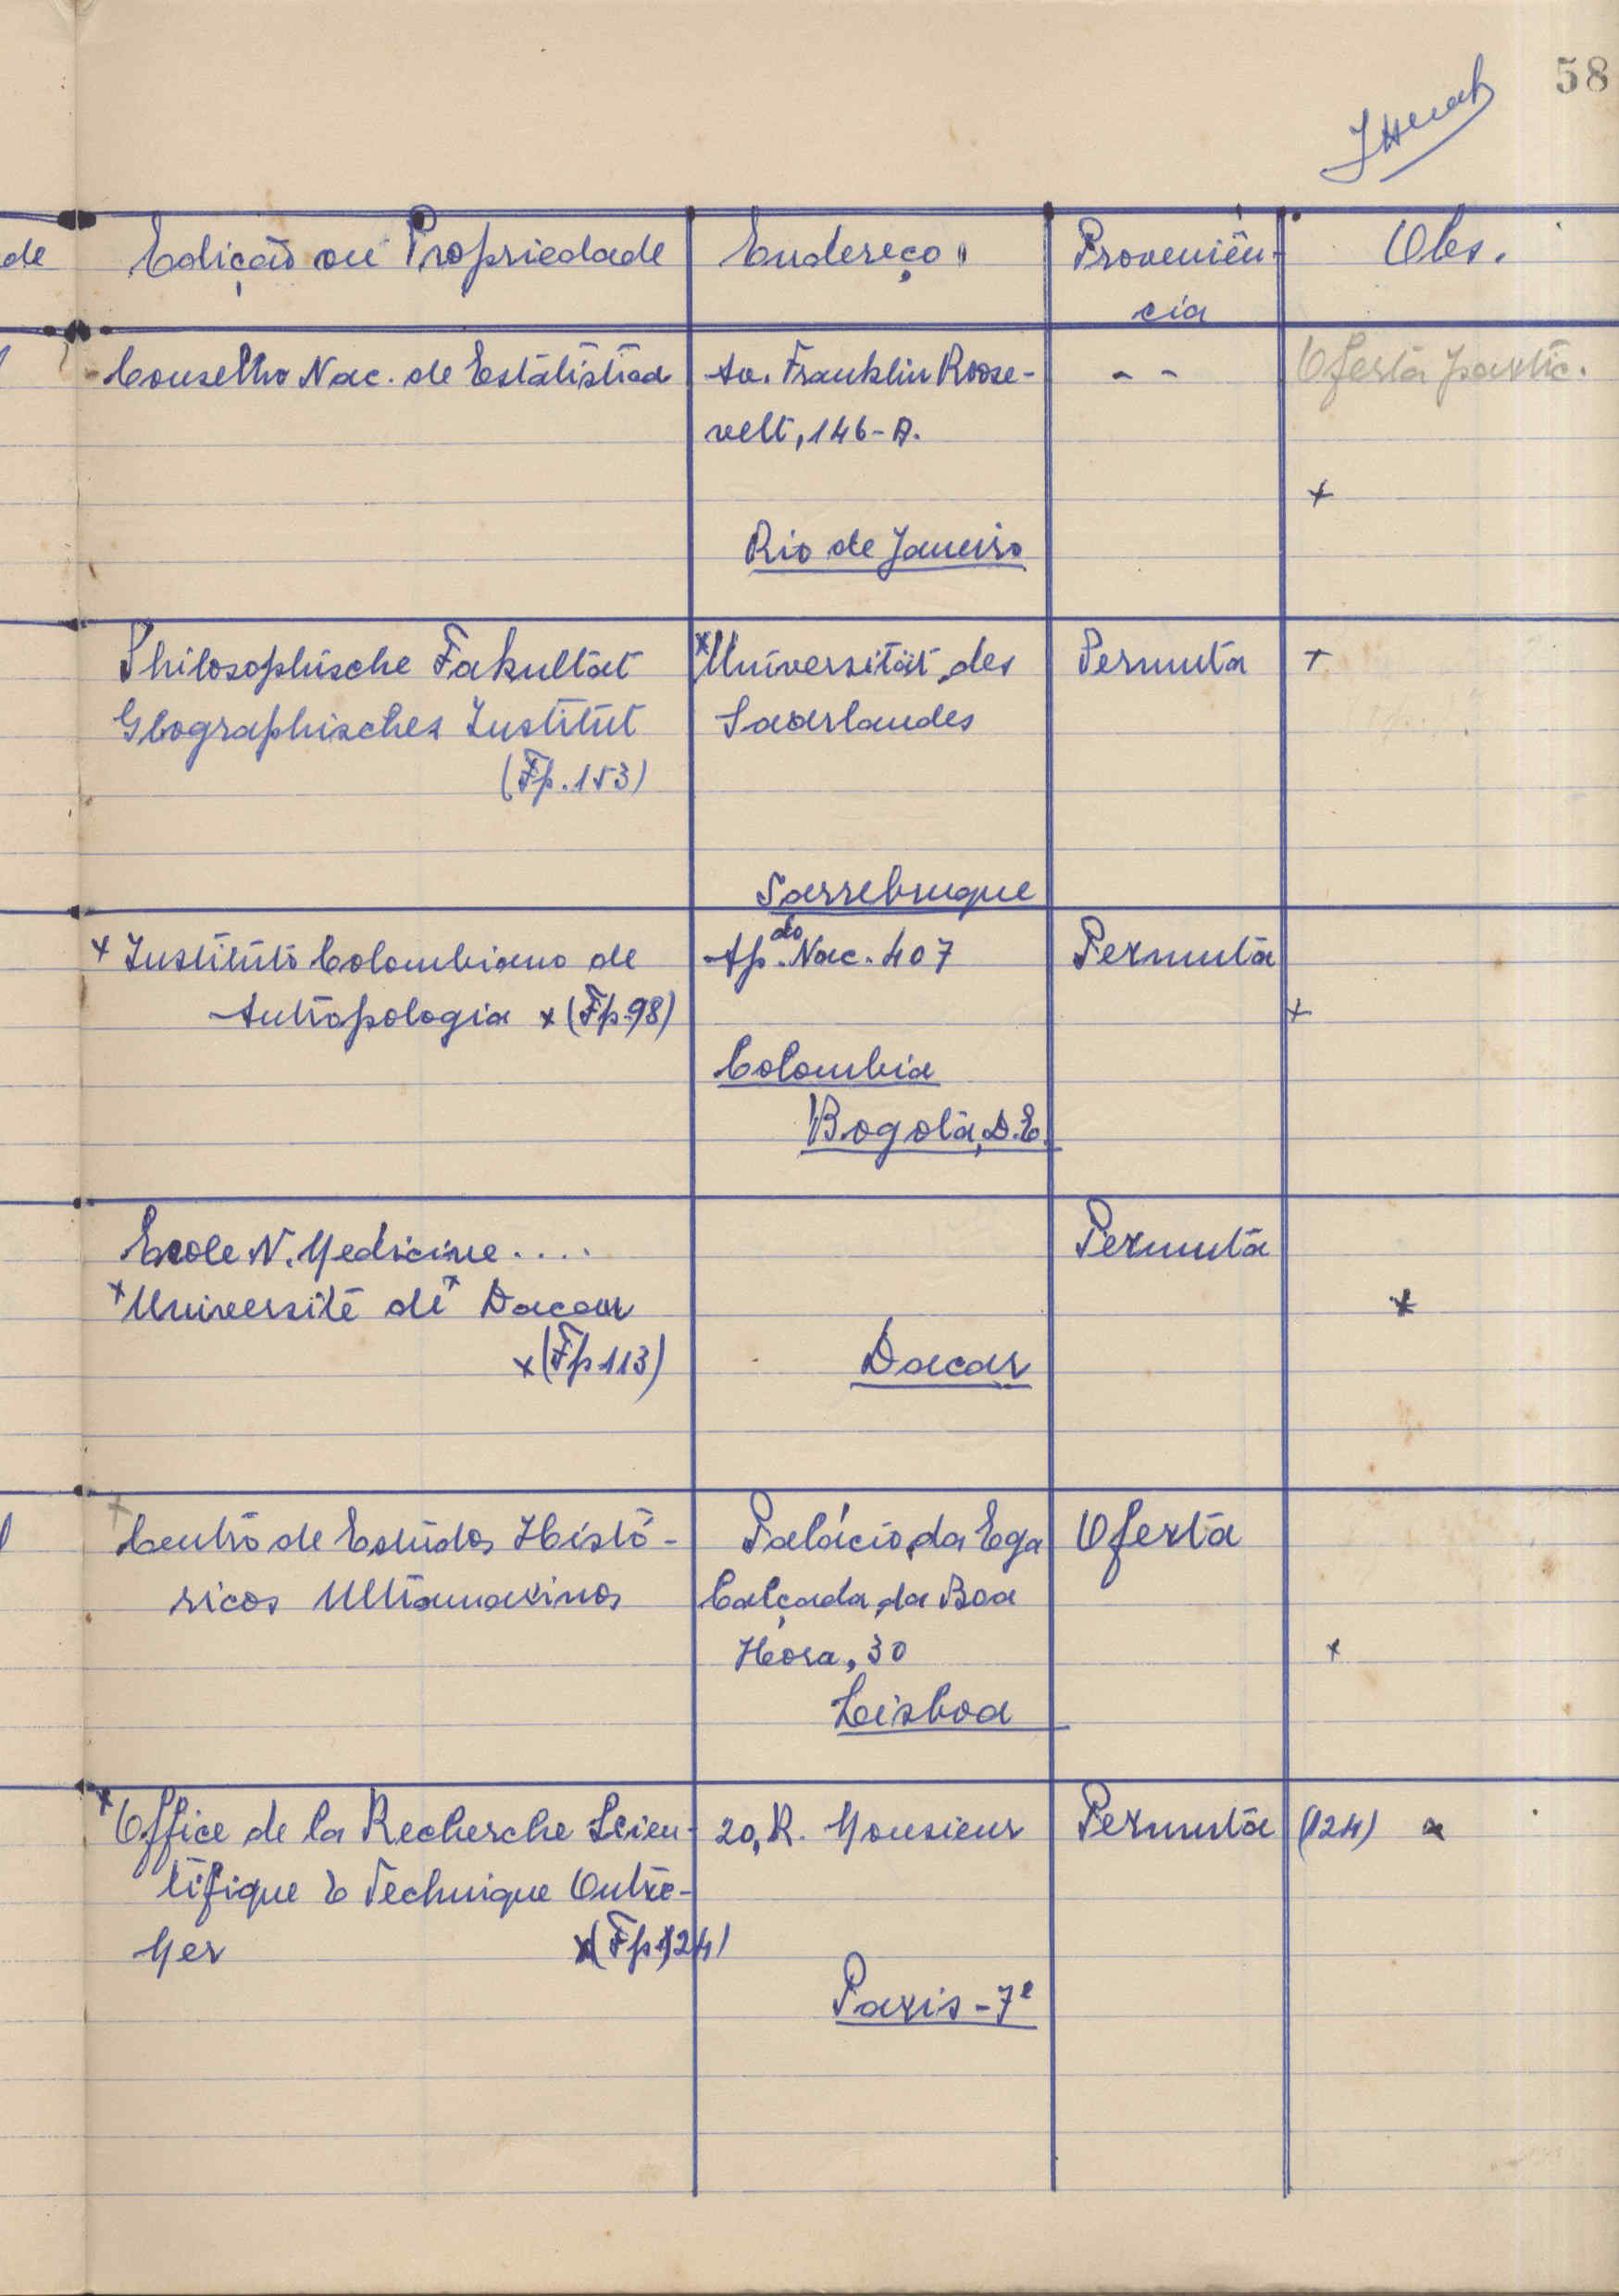 58
de Edição ou Propriedade Endereço Proveniên- Obs.
cia
Conselho Nac. de Estatística Av. Franklin Roose- - - Oferta partic.
velt, 146-A.
x
Rio de Janeiro
Philosophische Fakultät x Universität des Permuta +
Geographisches Institut Saarlandes
(Fp. 153)
Sarrebruque
x Instituto Colombiano de Ap.do Nac. 407 Permuta
Antropologia x (Fp. 98) x
Colombia
Bogotá, D.E.
Ecole N. Medicine.... Permuta
x Université de Dacar x
x (Fp 113) Dacar
x Centro de Estudos Histó- Palácio da Ega Oferta
ricos Ultramarinos Calçada da Boa
Hora, 30 x
Lisboa
x Office de la Recherche Scien- 20, R. Monsieur Permuta (124) x
tifique E Technique Outre-
Mer x (Fp 124)
Paris - 7e